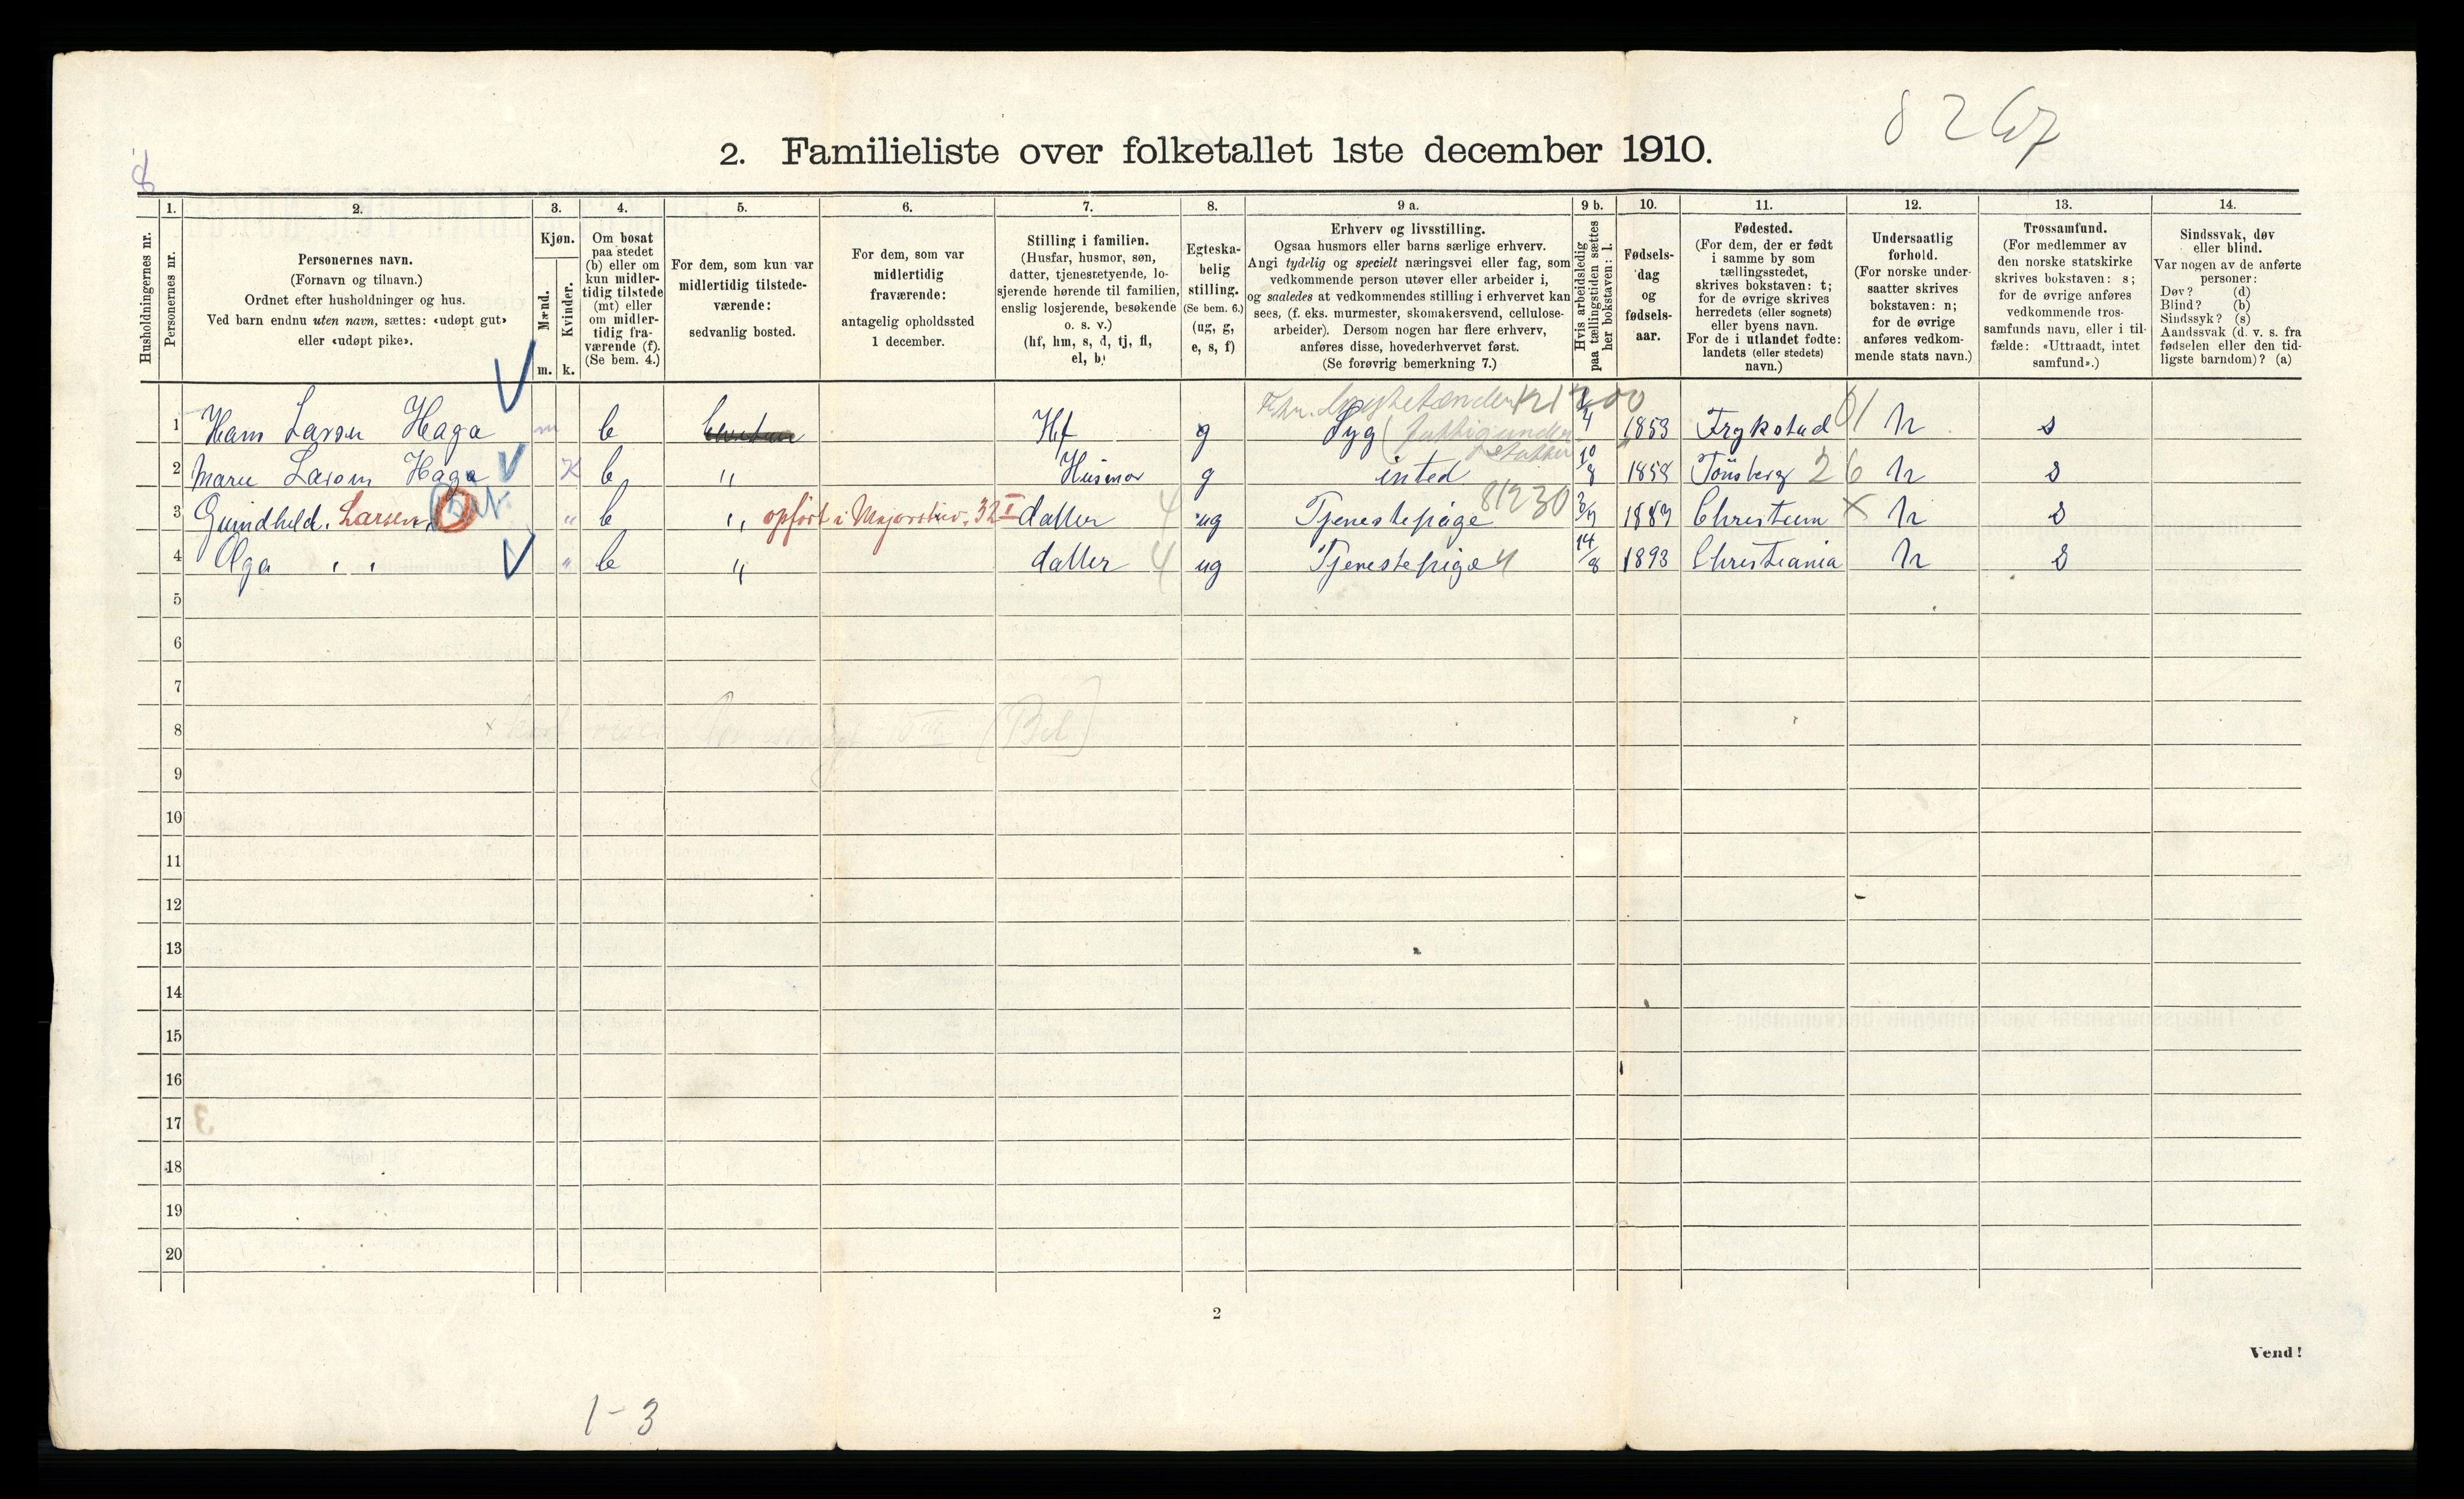 8267
8
2. Familieliste over folketallet 1ste december 1910.
Husholdningernes nr.
1. Personernes nr.
2. Personernes navn.
(Fornavn og tilnavn.)
Ordnet efter husholdninger og hus.
Ved barn endnu uten navn, sættes: «udøpt gut»
eller «udøpt pike».
3. Kjøn.
Mænd. m.
Kvinder. k.
4. Om bosat
paa stedet
(b) eller om
kun midler-
tidig tilstede
(mt) eller
om midler-
tidig fra-
værende (f).
(Se bem. 4.)
5. For dem, som kun var
midlertidig tilstede-
værende:
sedvanlig bosted.
6. For dem, som var
midlertidig
fraværende:
antagelig opholdssted
1 december.
7. Stilling i familien.
(Husfar, husmor, søn,
datter, tjenestetyende, lo-
sjerende hørende til familien,
enslig losjerende, besøkende
o. s. v.)
(hf, hm, s, d, tj, fl,
el, b)
8. Egteska-
belig
stilling.
(Se bem. 6.)
(ug, g,
e, s, f)
9 a. Erhverv og livsstilling.
Ogsaa husmors eller barns særlige erhverv.
Angi tydelig og specielt næringsvei eller fag, som
vedkommende person utøver eller arbeider i,
og saaledes at vedkommendes stilling i erhvervet kan
sees, (f. eks. murmester, skomakersvend, cellulose-
arbeider). Dersom nogen har flere erhverv,
anføres disse, hovederhvervet først.
(Se forøvrig bemerkning 7.)
9 b. Hvis arbeidsledig
paa tællingstiden sættes
her bokstaven: l.
10. Fødsels-
dag
og
fødsels-
aar.
11. Fødested.
(For dem, der er født
i samme by som
tællingsstedet,
skrives bokstaven: t;
for de øvrige skrives
herredets (eller sognets)
eller byens navn.
For de i utlandet fødte:
landets (eller stedets)
navn.)
12. Undersaatlig
forhold.
(For norske under-
saatter skrives
bokstaven: n;
for de øvrige
anføres vedkom-
mende stats navn.)
13. Trossamfund.
(For medlemmer av
den norske statskirke
skrives bokstaven: s;
for de øvrige anføres
vedkommende tros-
samfunds navn, eller i til-
fælde: «Uttraadt, intet
samfund».)
14. Sindssvak, døv
eller blind.
Var nogen av de anførte
personer:
Døv? (d)
Blind? (b)
Sindssyk? (s)
Aandssvak (d. v. s. fra
fødselen eller den tid-
ligste barndom)? (a)
1 Hans Larsen Haga m b Hf g Syg 4 1853 Trykstad 01 n s
2 Marie Larsen Haga K b " Husmor g inted 10/8 1858 Tönsberg 26 n s
3 Gundhild. Larsen " b " opført i Majorstuv. 32 I datter 4 ug Tjenestepige 81230 1887 x n s
4 Olga " " " b " datter 4 ug Tjenestepige 14/8 1893 Christiania n s
5
6
7
8
9
10
11
12
13
14
15
16
17
18
19
20
2
Vend!
1-3